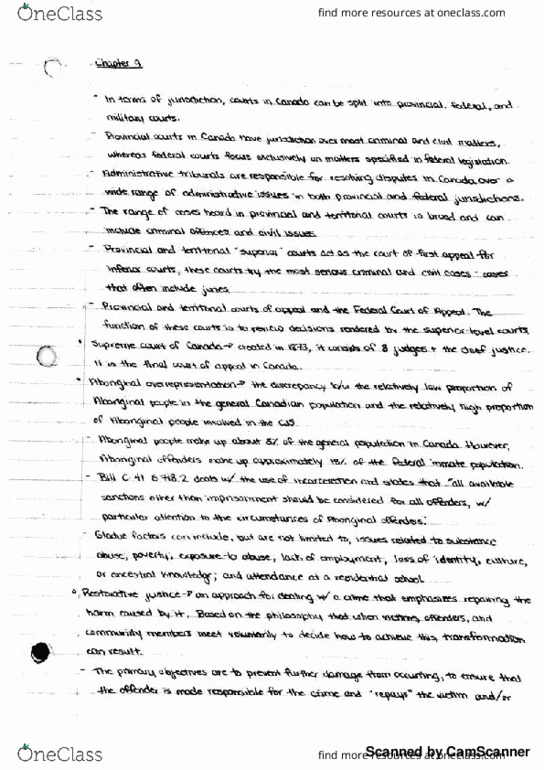 OneClass
find more resources at oneclass.com
Chapter 9
- In terms of jurisdiction, courts in Canada can be split into provincial, federal, and
military courts.
- Provincial courts in Canada have jurisdiction over most criminal and civil matters,
whereas federal courts focus exclusively on matters specified in federal legislation.
- Administrative tribunals are responsible for resolving disputes in Canada over a
wide range of administrative issues in both provincial and federal jurisdictions.
- The range of cases heard in provincial and territorial courts is broad and can
include criminal offences and civil issues.
- Provincial and territorial "superior" courts act as the court of first appeal for
inferior courts, these courts try the most serious criminal and civil cases - cases
that often include juries.
- Provincial and territorial courts of appeal and the Federal Court of Appeal. The
function of these courts is to review decisions rendered by the superior-level courts.
• Supreme court of Canada → created in 1873, it consists of 8 judges + the chief justice.
It is the final court of appeal in Canada.
• Aboriginal overrepresentation → the discrepancy b/w the relatively low proportion of
Aboriginal people in the general Canadian population and the relatively high proportion
of Aboriginal people involved in the CJS.
- Aboriginal people make up about 3% of the general population in Canada. However,
Aboriginal offenders make up approximately 18% of the federal inmate population.
- Bill C-41 & 718.2 deals w/ the use of incarceration and states that "all available
sanctions other than imprisonment should be considered for all offenders, w/
particular attention to the circumstances of Aboriginal offenders."
- Gladue factors can include, but are not limited to, issues related to substance
abuse, poverty; exposure to abuse, lack of employment; loss of identity, culture,
or ancestral knowledge; and attendance at a residential school.
• Restorative justice → an approach for dealing w/ a crime that emphasizes repairing the
harm caused by it. Based on the philosophy that when victims, offenders, and
community members meet voluntarily to decide how to achieve this, transformation
can result.
- The primary objectives are to prevent further damage from occurring, to ensure that
the offender is made responsible for the crime and "repays" the victim and/or
Scanned by CamScanner
OneClass
find more resources at oneclass.com